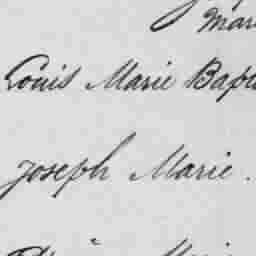 Mari
Louis Marie Bap
Joseph Marie.
Marie